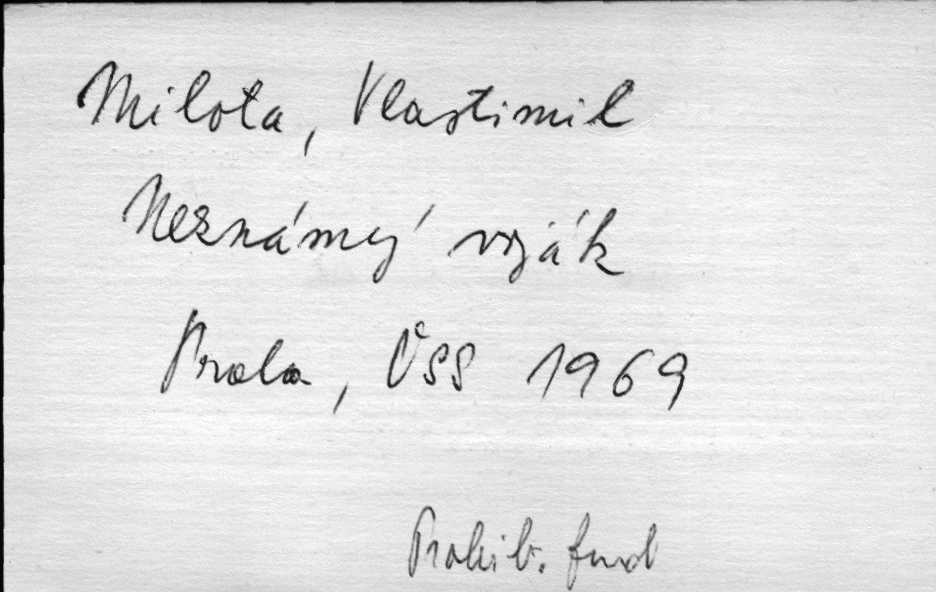 Milota, Vlastimil
Neznámý voják
Praha, ČSS 1969
Prohib. fond